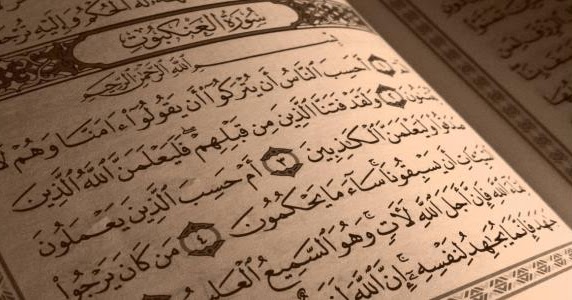 الحُكْمُ وَإِلَيْهِ
سُورَةُ العَنكَبُوتِ
بِسْمِ ٱللَّهِ ٱلرَّحْمَٰنِ ٱلرَّحِيمِ
أَحَسِبَ ٱلنَّاسُ أَن يُتْرَكُوٓا۟ أَن يَقُولُوٓا۟ ءَامَنَّا وَهُمْ لَا
وَلَقَدْ فَتَنَّا ٱلَّذِينَ مِن قَبْلِهِمْ ۖ فَلَيَعْلَمَنَّ ٱللَّهُ ٱلَّذِينَ
صَدَقُوا۟ وَلَيَعْلَمَنَّ ٱلْكَٰذِبِينَ ٣ أَمْ حَسِبَ ٱلَّذِينَ يَعْمَلُونَ
أَن يَسْبِقُونَا ۚ سَآءَ مَا يَحْكُمُونَ ٤ مَن كَانَ يَرْجُوا۟
ٱللَّهِ فَإِنَّ أَجَلَ ٱللَّهِ لَءَاتٍ ۚ وَهُوَ ٱلسَّمِيعُ ٱلْعَلِيمُ
جَٰهَدَ فَإِنَّمَا يُجَٰهِدُ لِنَفْسِهِۦٓ ۚ إِنَّ ٱللَّهَ